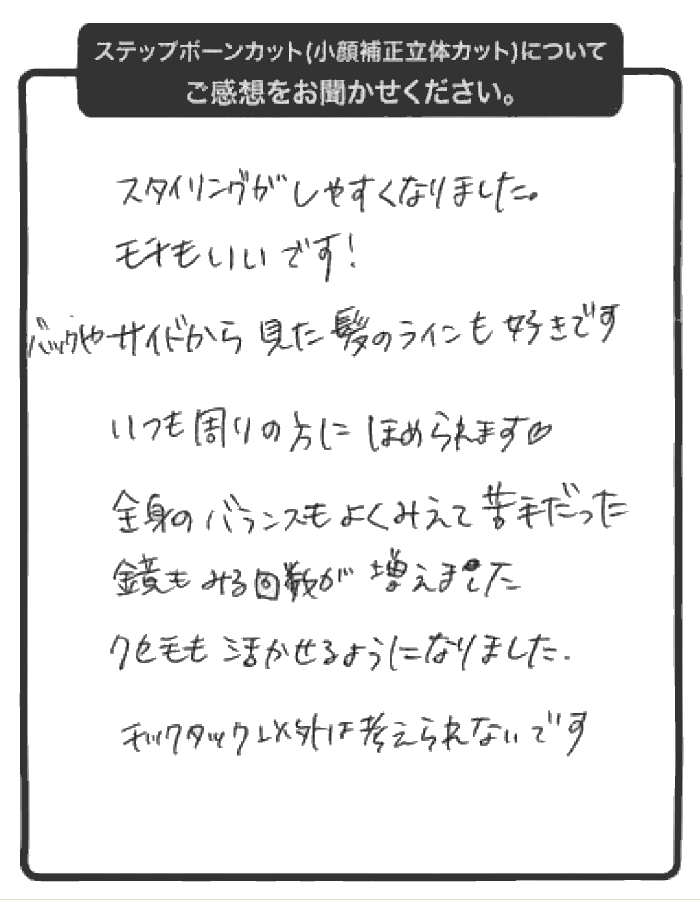 ステップボーンカット(小顔補正立体カット)について
ご感想をお聞かせください。
スタイリングがしやすくなりました。
モチもいいです！
バックやサイドから見た髪のラインも好きです
いつも周りの方にほめられます♡
全身のバランスもよくみえて苦手だった
鏡もみる回数が増えました
クセ毛も活かせるようになりました.
チックタック以外は考えられないです